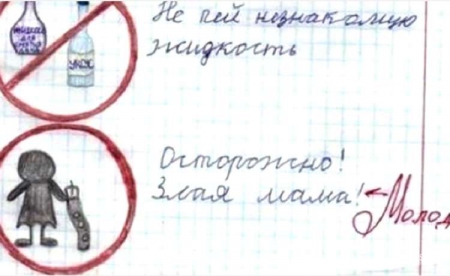 Не пей незнакомую
жидкость
УКСУС
Осторожно!
Злая мама!
Молод